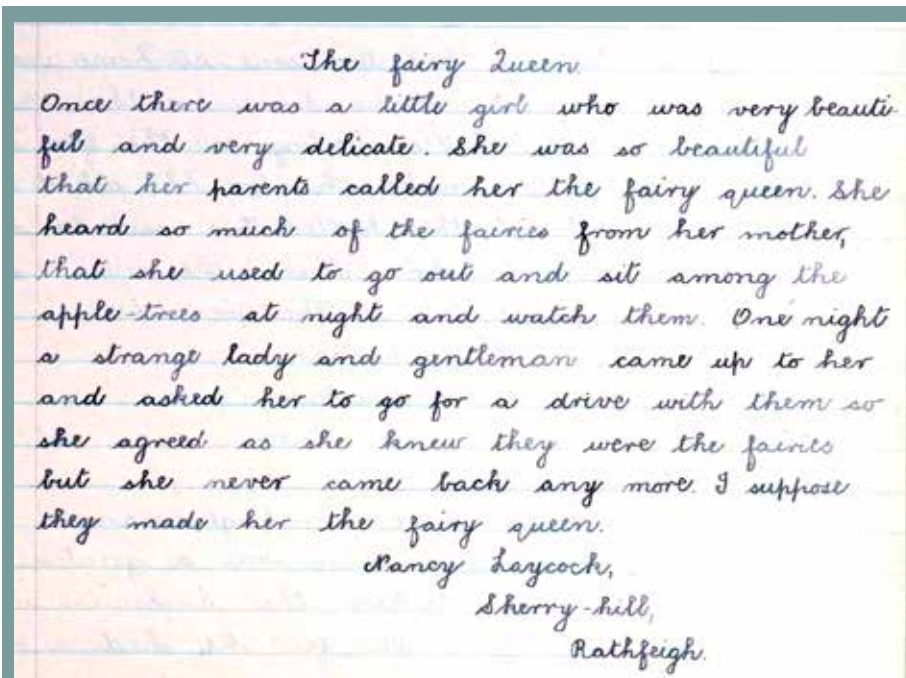 The fairy Queen.
Once there was a little girl who was very beauti-
ful and very delicate. She was so beautiful
that her parents called her the fairy queen. She
heard so much of the fairies from her mother,
that she used to go out and sit among the
apple-trees at night and watch them. One night
a strange lady and gentleman came up to her
and asked her to go for a drive with them so
she agreed as she knew they were the fairies
but she never came back any more. I suppose
they made her the fairy queen.
Nancy Laycock,
Sherry-hill,
Rathfeigh.